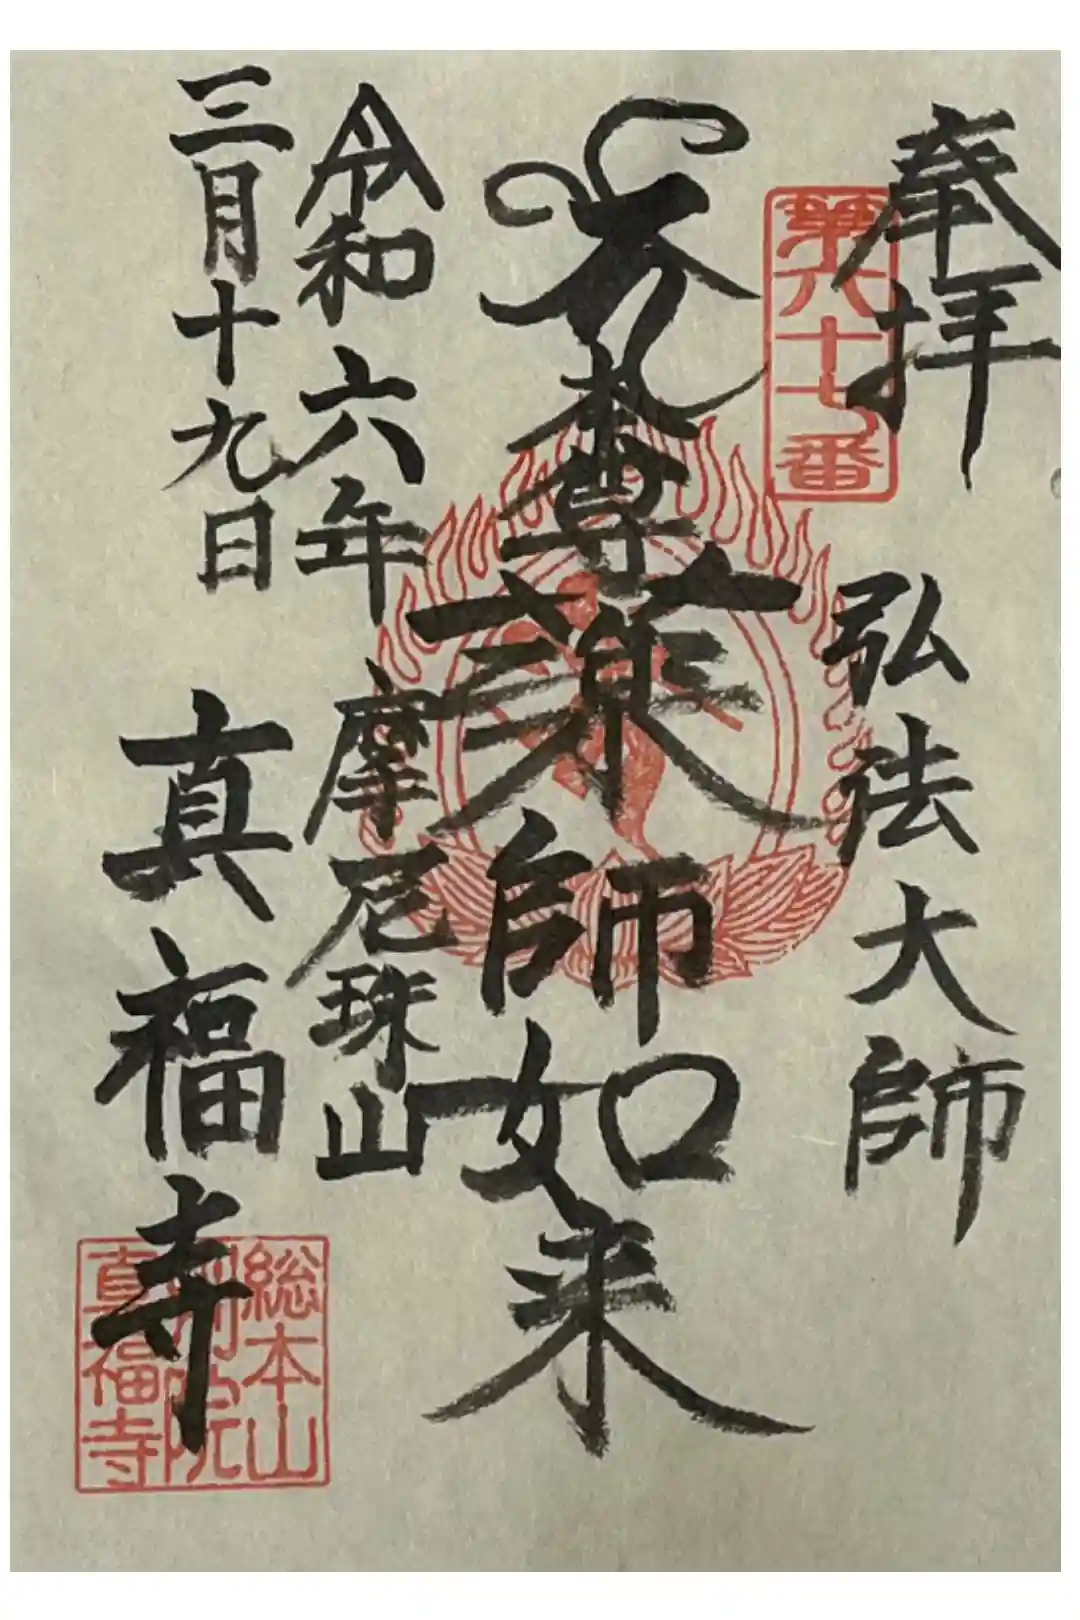 奉拝
弘法大師
第六十七番
本尊薬師如来
令和六年
摩尼珠山
三月十九日
真福寺
総本山
院
真福寺